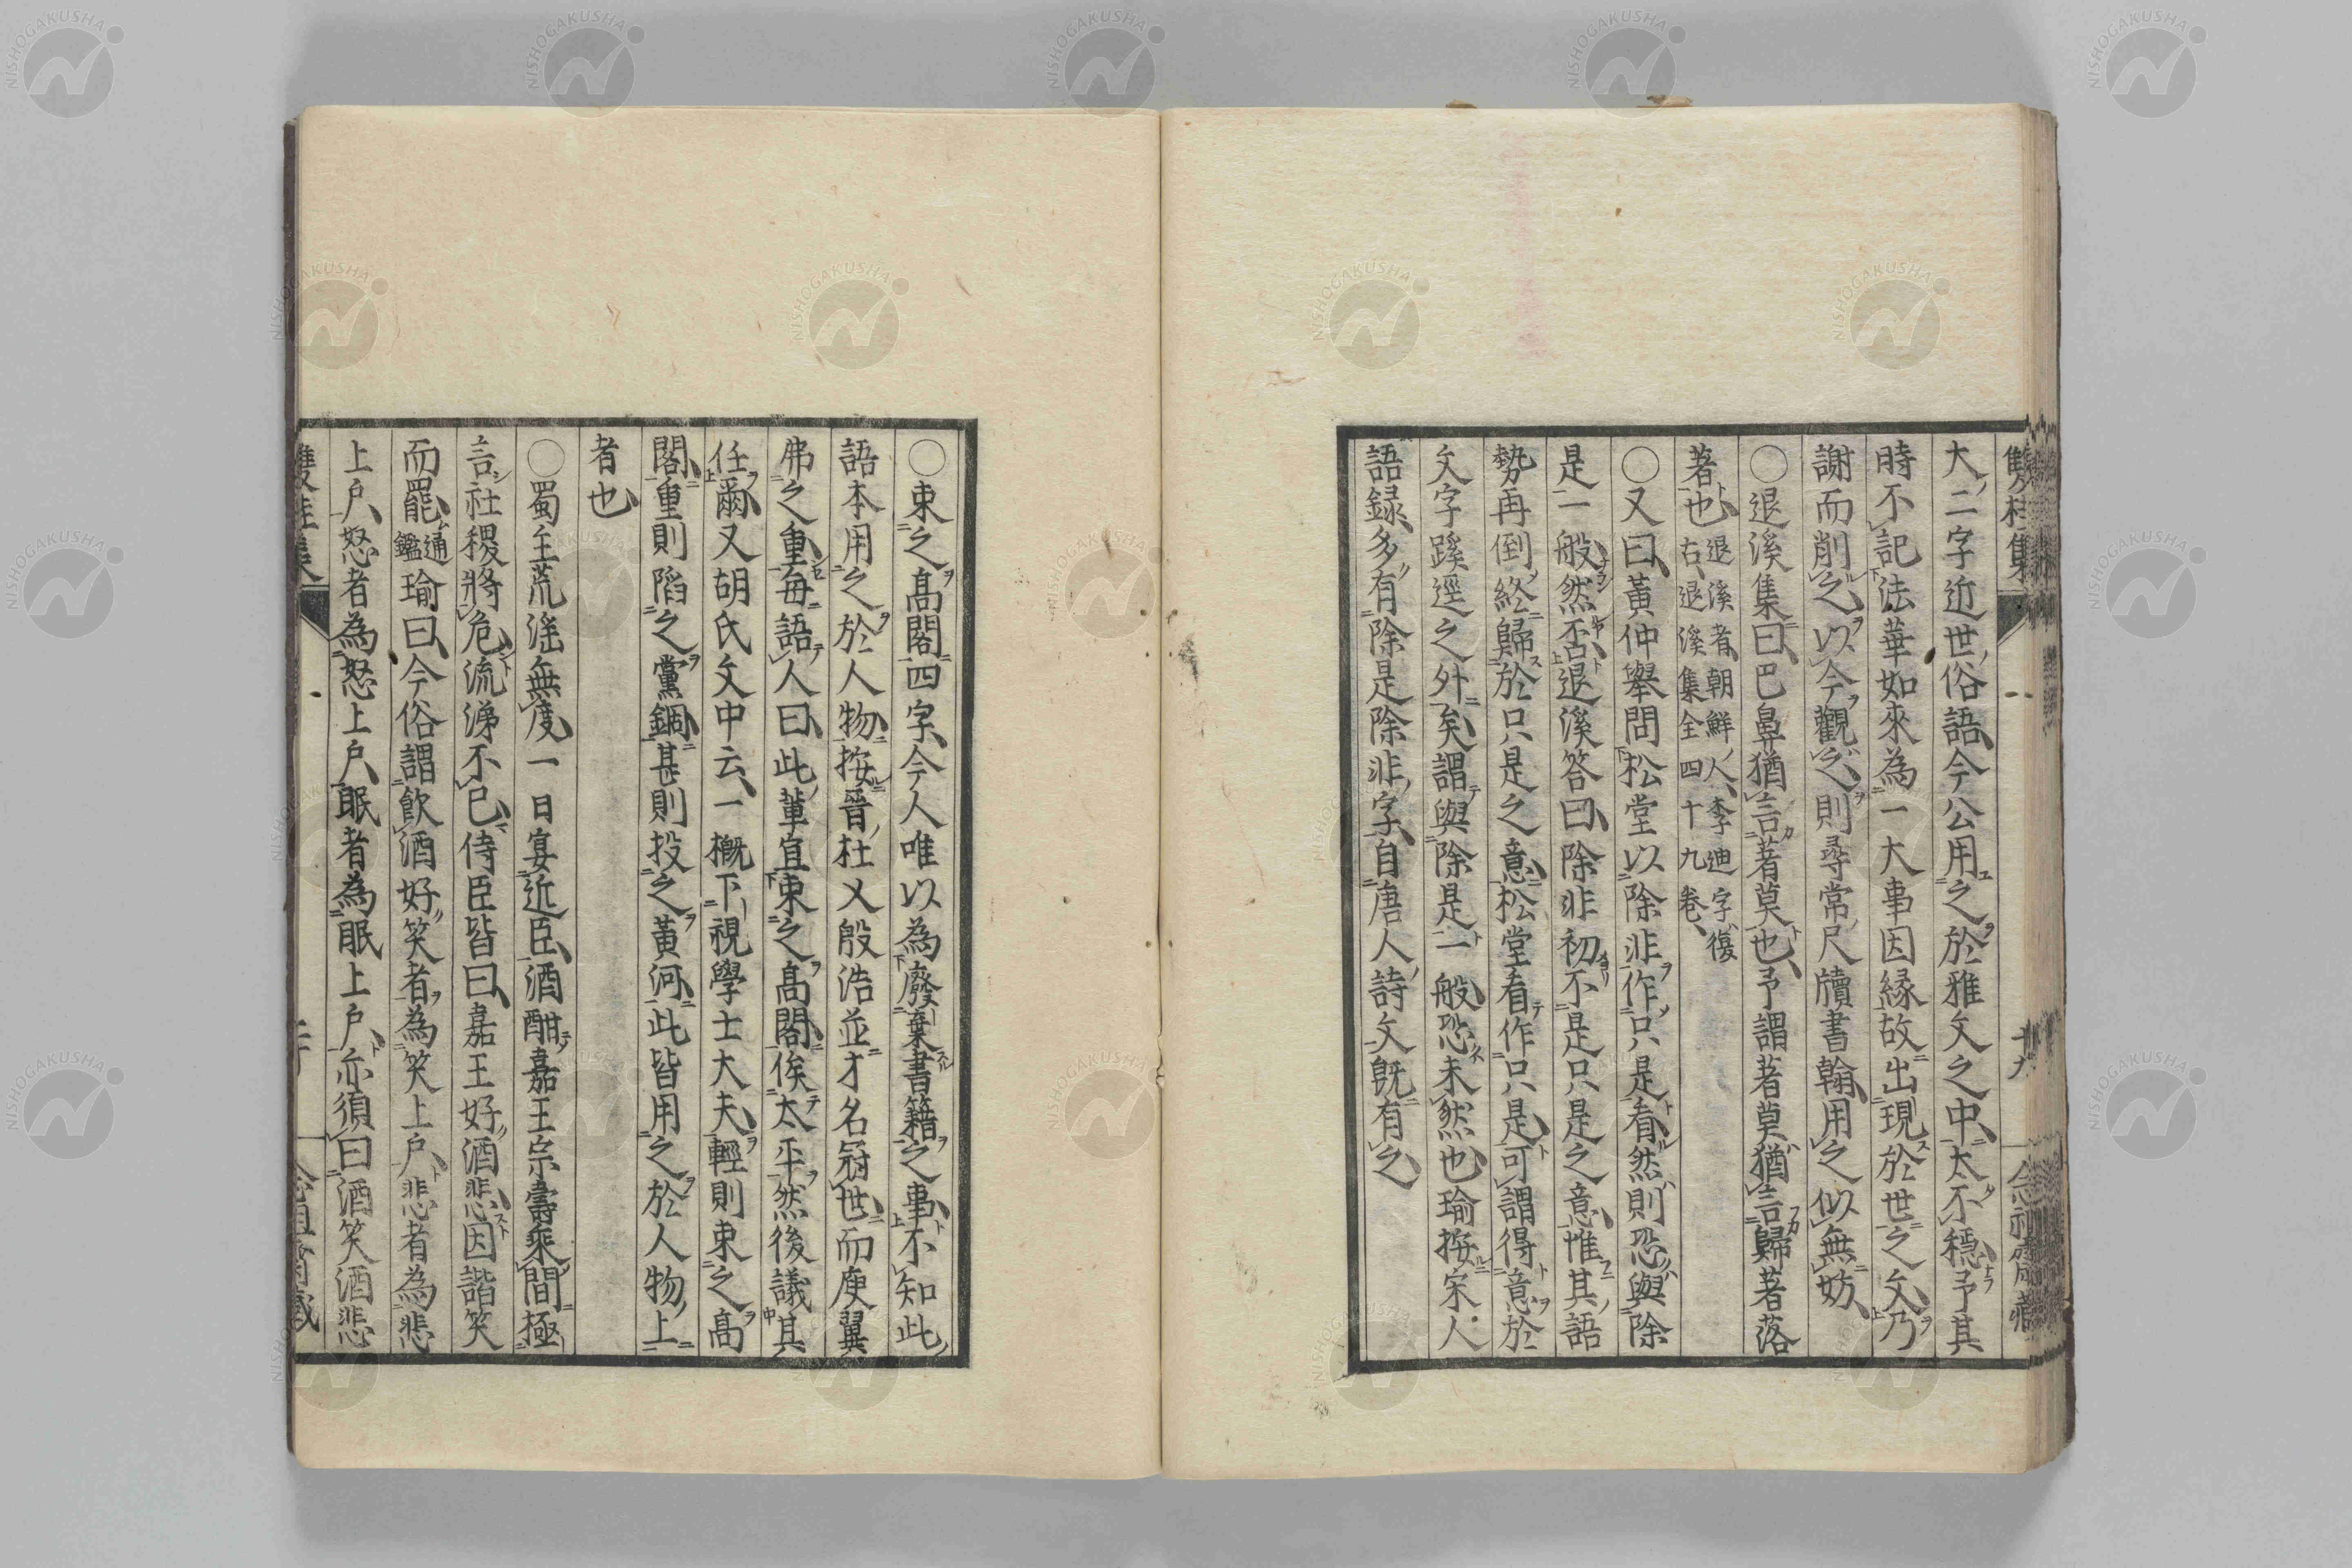 雙桂集
大二字近世俗語今公用之於雅文之中太不穩予其
時不記法華如來為一大事因縁故出現於世之文乃
謝而削之以今觀之則尋常尺牘書翰用之似無妨
○退溪集曰巴鼻猶言著莫也予謂著莫猶言歸著落
著也退溪者朝鮮人李迪字復
右退溪集全四十九卷
○又曰黃仲舉問松堂以除非作只是看然則恐與除
是一般然否退溪答曰除非初不是只是之意惟其語
勢再倒終歸於只是之意松堂看作只是可謂得意於
文字蹊逕之外矣謂與除是一般恐未然也瑜按宋人
語録多有除是除非字自唐人詩文既有之
○束之高閣四字今人唯以為廢棄書籍之事不知此
語本用之於人物按晉杜乂殷浩並才名冠世而庾翼
弗之重每語人曰此輩宜束之高閣俟太平然後議其
任爾又胡氏文中云一概下視學士大夫輕則束之高
閣重則陷之黨錮甚則投之黃河此皆用之於人物上
者也
○蜀主荒滛無度一日宴近臣酒酣嘉王宗壽乘間極
言社稷將危流涕不已侍臣皆曰嘉王好酒悲因諧笑
而罷通鑑瑜曰今俗謂飲酒好笑者為笑上戶悲者為悲
上戶怒者為怒上戶眠者為眠上戶亦須曰酒笑酒悲
NISHOGAKUSHA